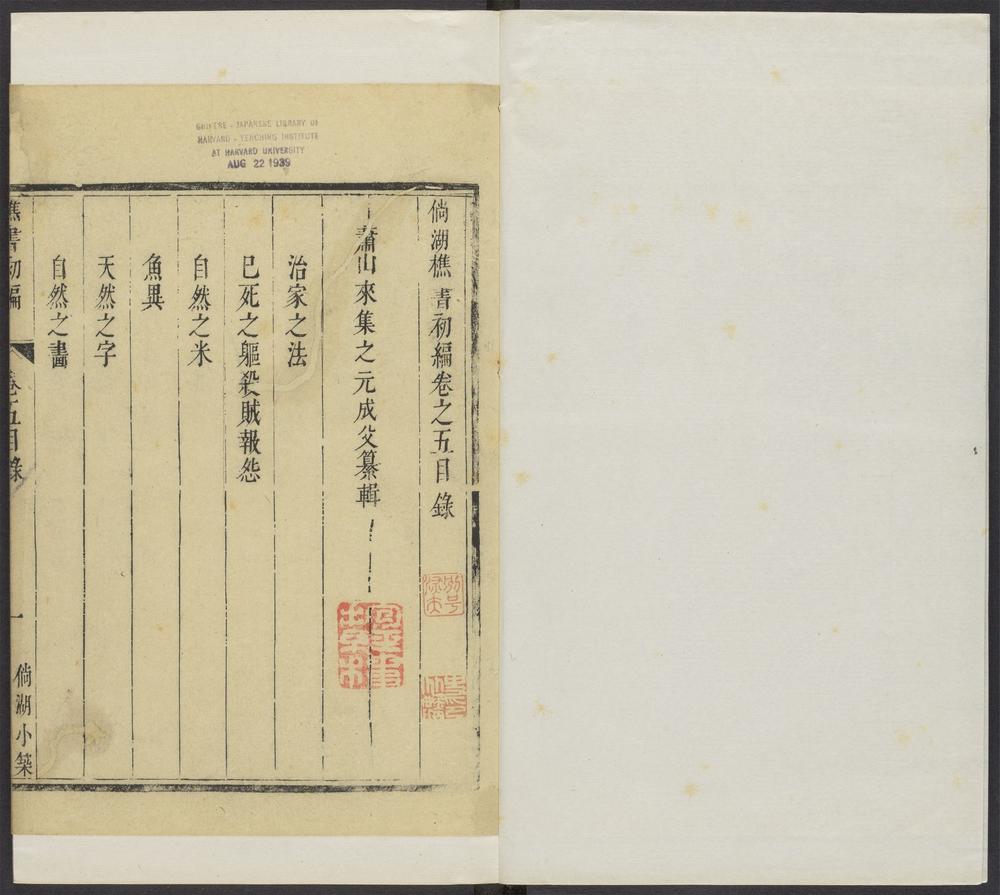 CHINESE - JAPANESE LIBRARY OF
HARVARD - YENCHING INSTITUTE
AT HARVARD UNIVERSITY
AUG 22 1939
倘湖樵書初編卷之五目錄
蕭山來集之元成父纂輯
治家之法
已死之軀殺賊報怨
自然之米
魚異
天然之字
自然之畵
樵書初編 卷五目錄 一 倘湖小築